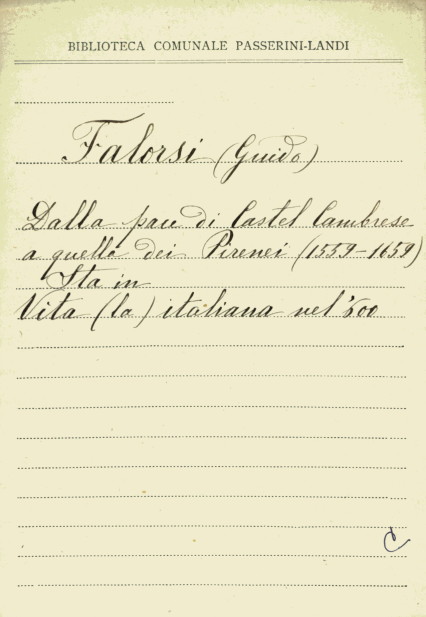 BIBLIOTECA COMUNALE PASSERINI-LANDI
Falorsi (Guido)
Dalla pace di Castel Cambrese
a quella dei Pirenei (1559-1659)
Sta in
Vita (la) italiana nel '500
C